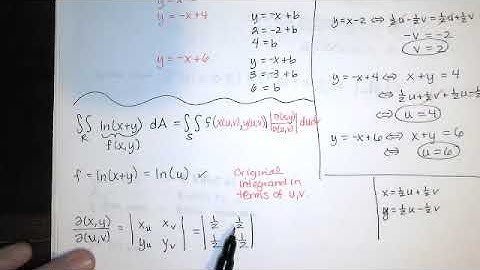 y = -x + 4
y = -x + 6
y = -x + b
2 = -2 + b
4 = b
y = -x + b
3 = -3 + b
6 = b
∬_R ln(x+y) dA = ∬_S f(x(u,v), y(u,v)) |∂(x,y)/∂(u,v)| du dv
f(x,y)
f = ln(x+y) = ln(u) ✓
Original
integrand in
terms of u, v.
∂(x,y)/∂(u,v) = | x_u x_v | = | ½ ½ |
| y_u y_v | | ½
y = x - 2 ⇔ ½u - ½v = ½u + ½v
-v = -2
v = 2
y = -x + 4 ⇔ x + y = 4
⇔ ½u + ½v + ½u - ½
⇔ u = 4
y = -x + 6 ⇔ x + y = 6
⇔ u = 6
x = ½u + ½v
y = ½u - ½v